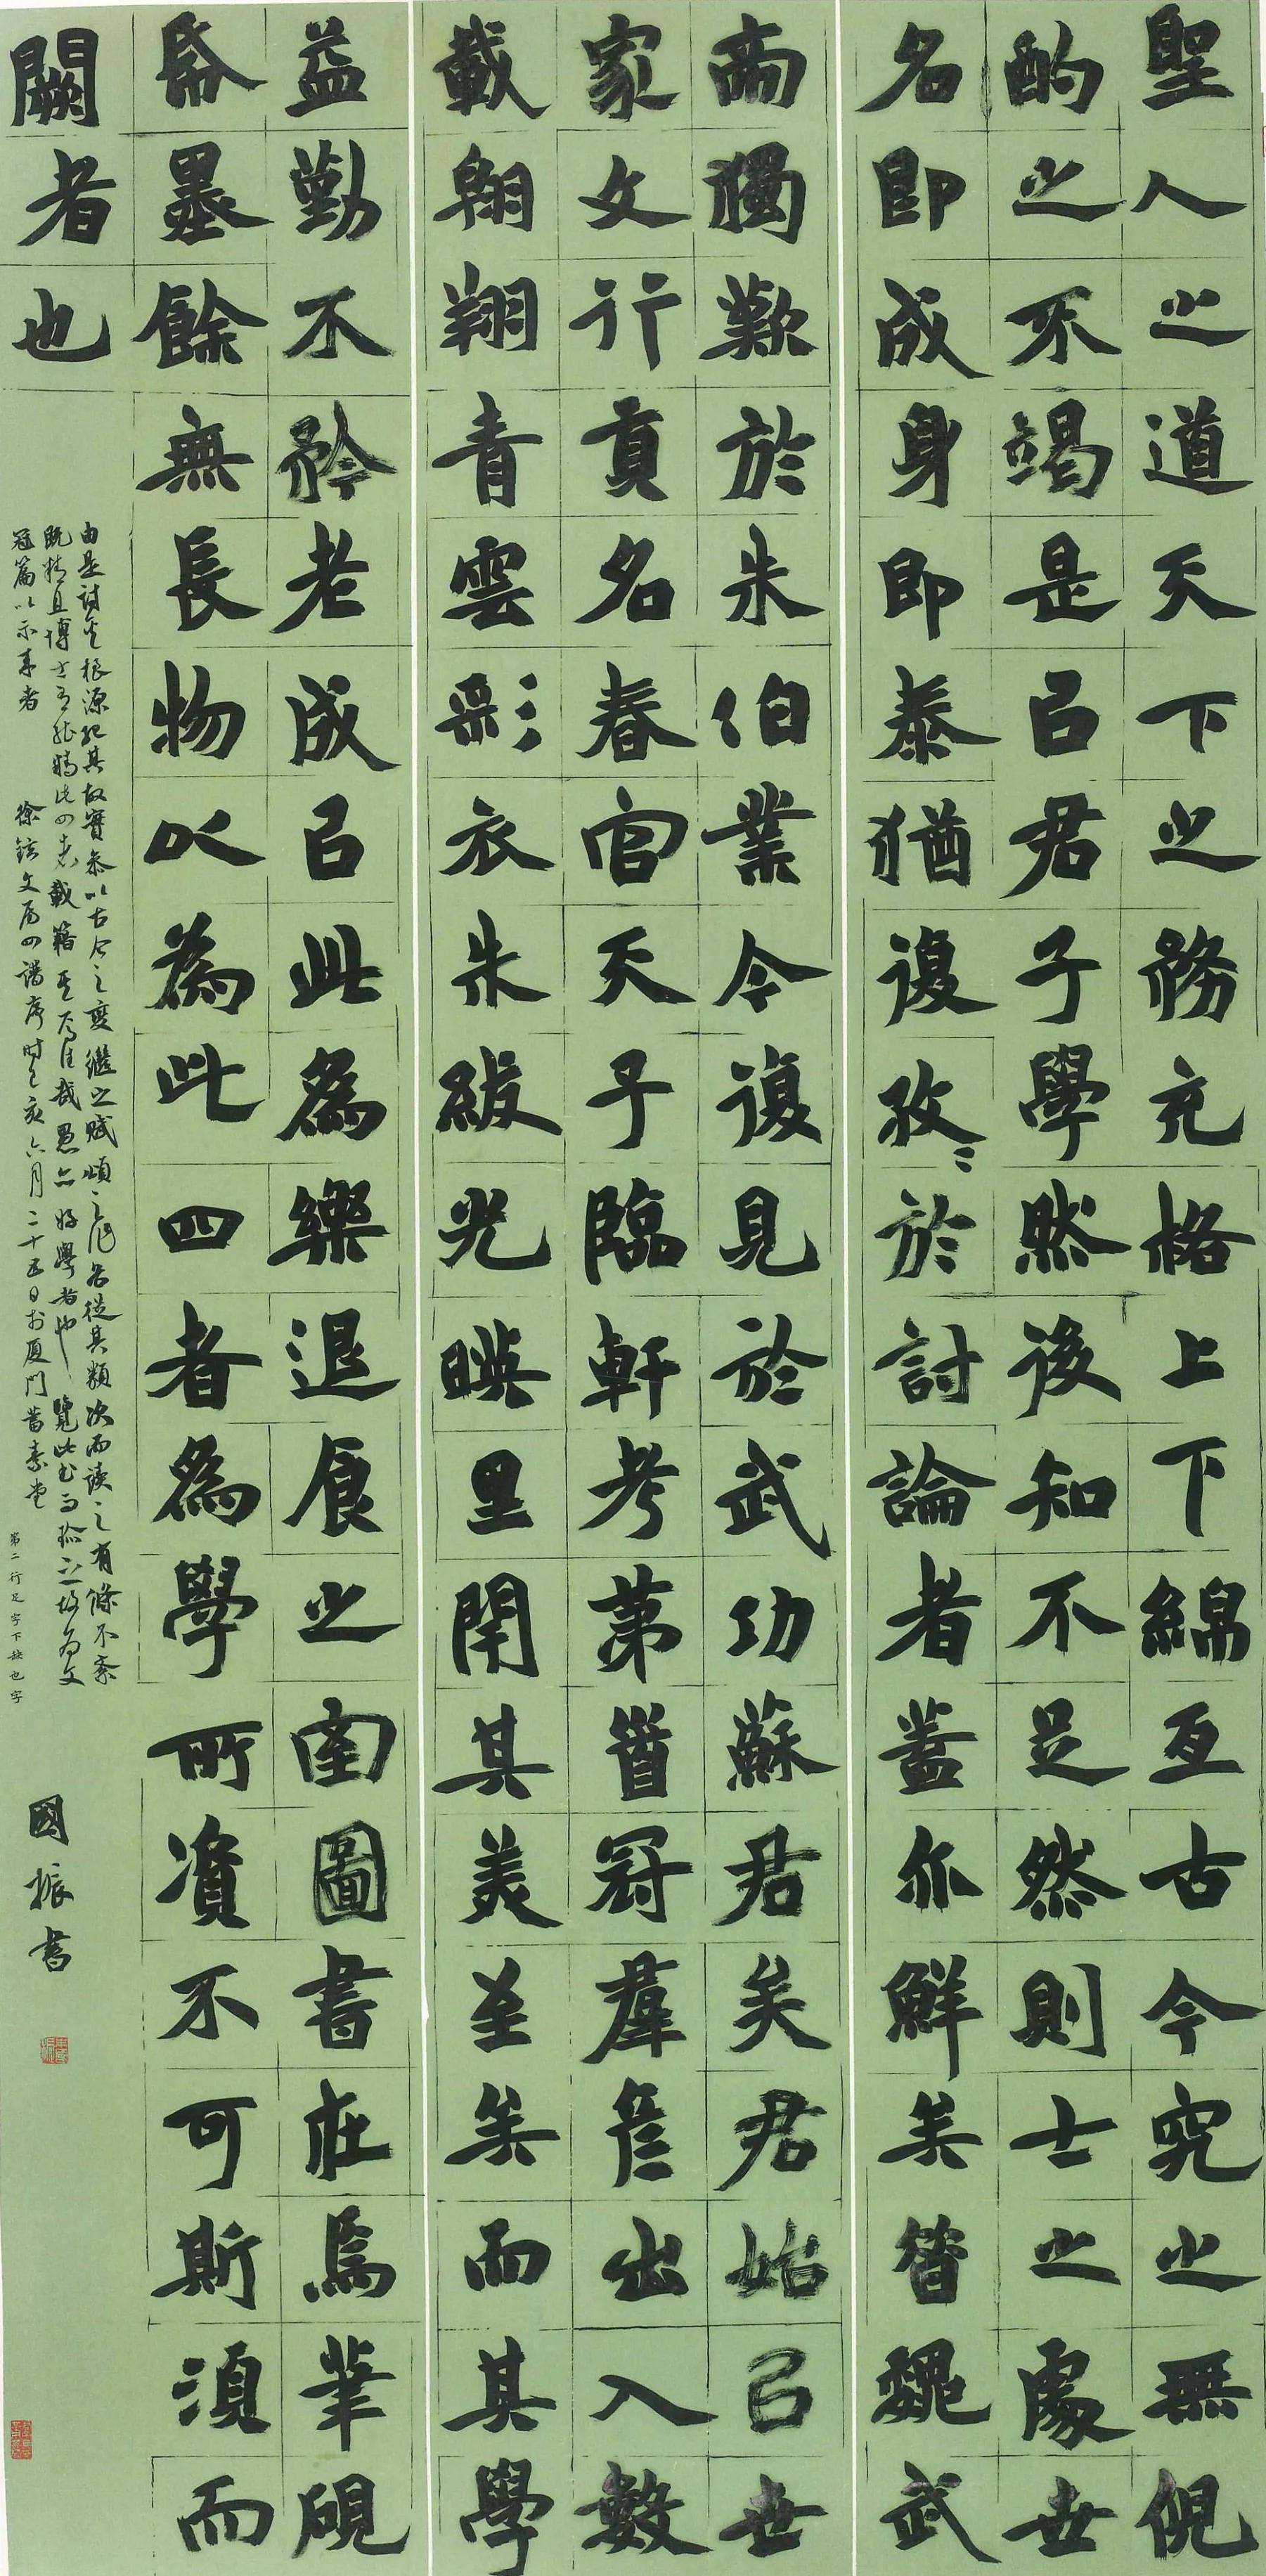 聖人之道天下之務充格上下綿亙古今究之無倪
酌之不竭是㠯君子學然後知不足然則士之處世
名即成身即泰猶復孜〻於討論者蓋亦鮮矣昔魏武
帝獨歎於朱伯業今復見於武功蘇君矣君始㠯世
家文行貢名春官天子臨軒考第首冠羣彥出入數
載翱翔青雲彩衣朱紱光暎里閈其美至矣而其學
益勤不矜老成㠯此為樂退食之室圖書在焉筆硯
紙墨餘無長物以為此四者為學所資不可斯須而
闕者也
由是討其根源紀其故實參以古今之變繼之賦頌之作各從其類次而讀之有條不紊
既精且博士有能精此四者載籍其焉往哉愚亦好學者也覽此書而珍之故為文
冠篇以示來者 徐鉉文房四譜序時己亥六月二十五日於厦門蓄素堂
第二行足字下缺也字
國振書